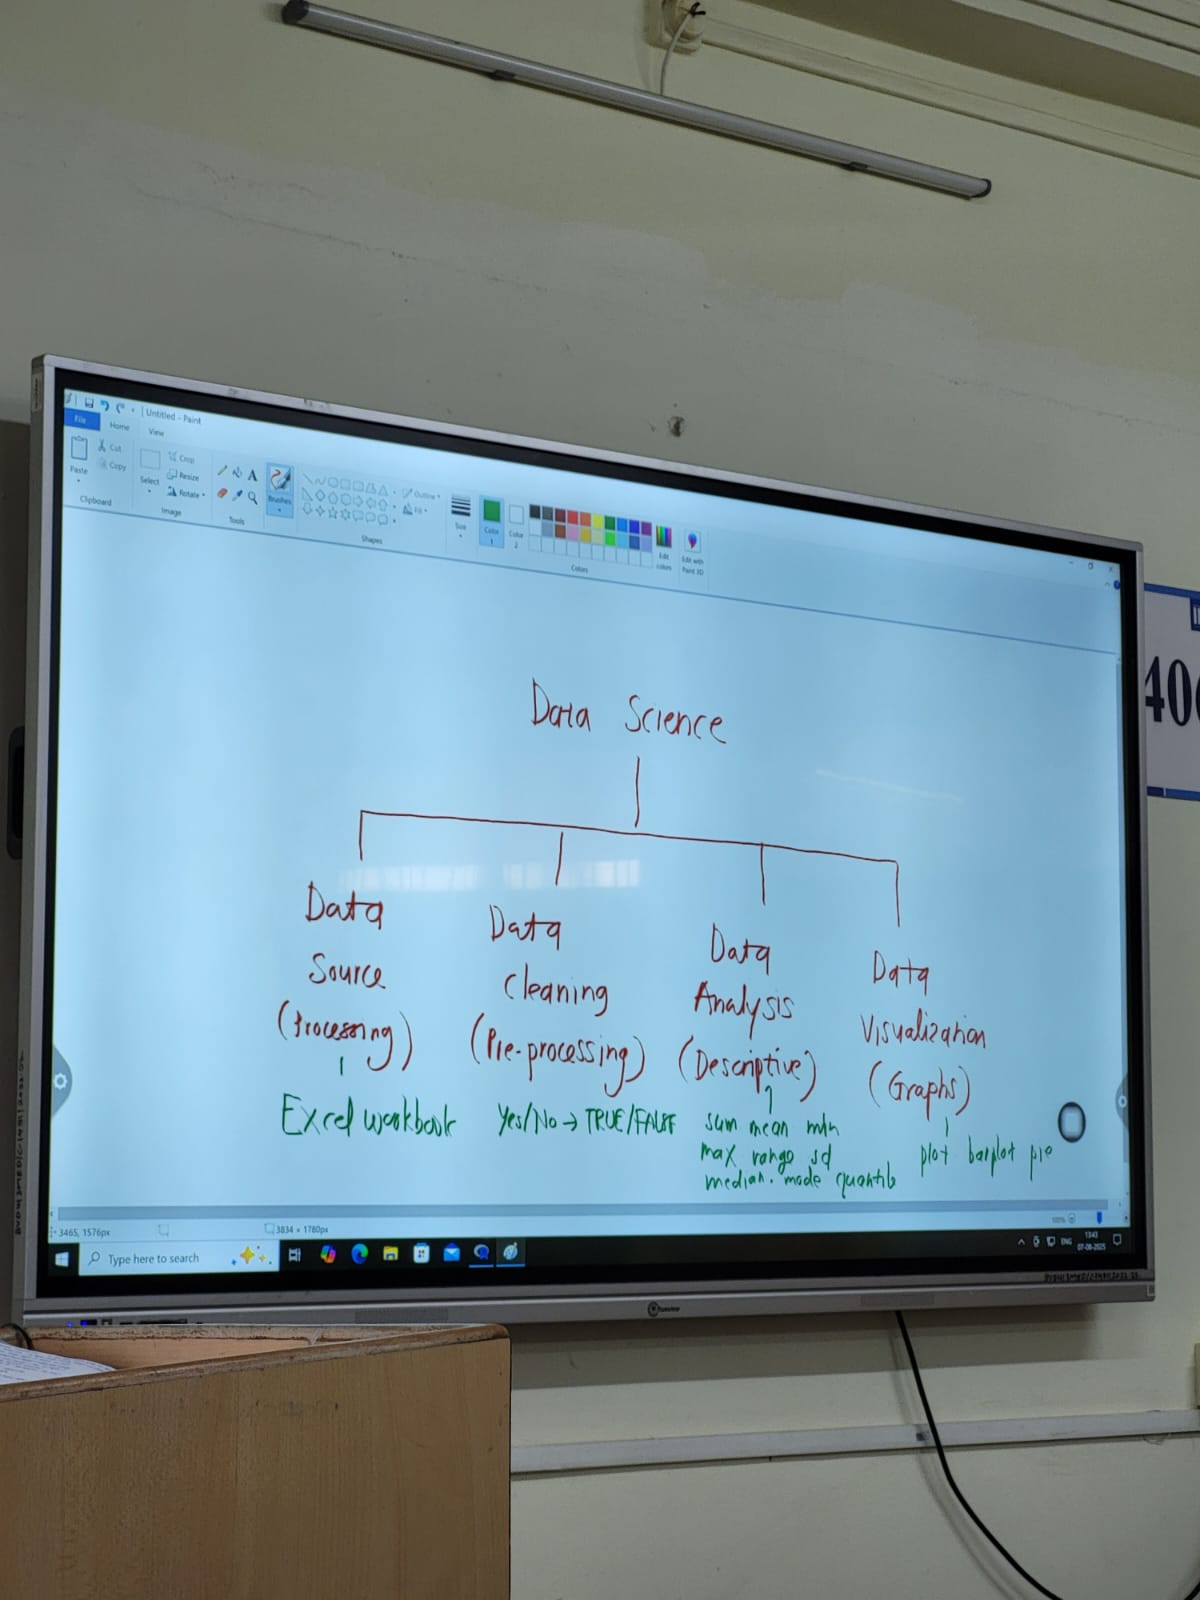 Untitled - Paint
File
Home
View
Paste
Cut
Copy
Clipboard
Select
Crop
Resize
Rotate
Image
Tools
Brushes
Outline
Fill
Shapes
Size
Color 1
Color 2
Colors
Edit colors
Edit with Paint 3D
Data Science
Data Source (Processing)
Excel workbook
Data Cleaning (Pre-processing)
Yes/No → TRUE/FALSE
Data Analysis (Descriptive)
sum mean min
max range sd
median. mode quantile
Data Visualization (Graphs)
plot barplot pie
3465, 1576px
3834 × 1760px
100%
Type here to search
ENG
13:43
07-08-2025